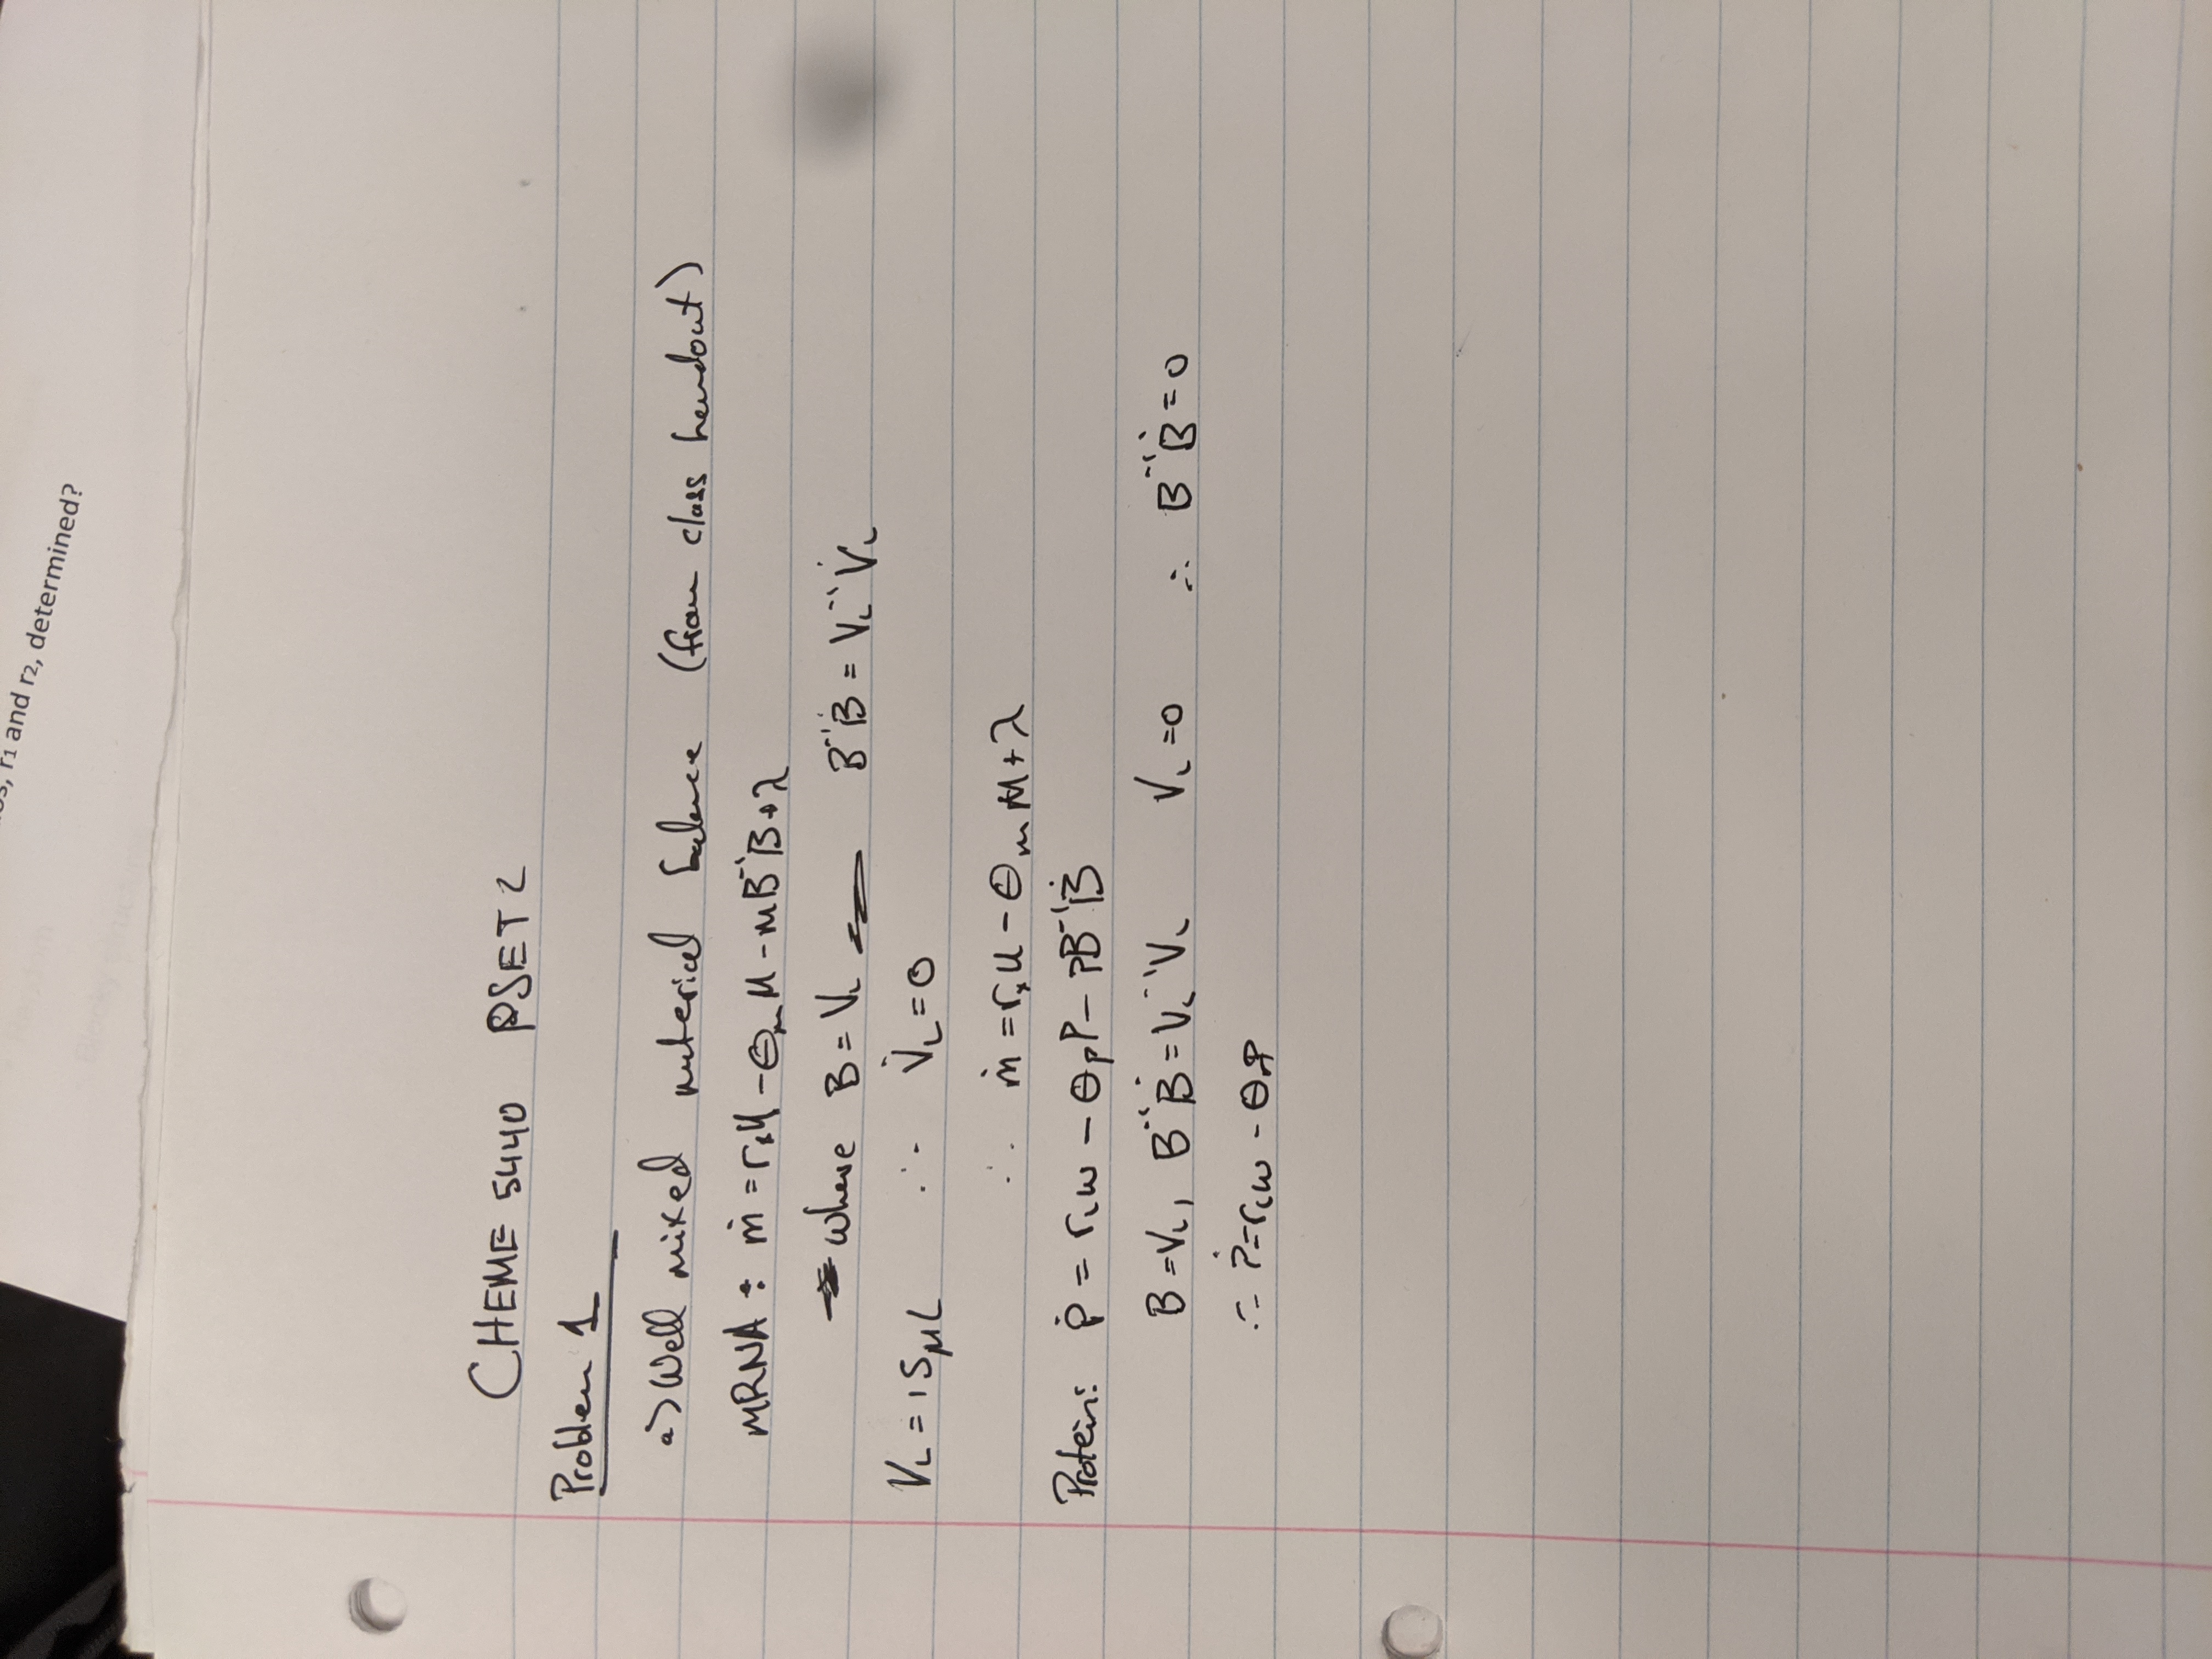 r1 and r2, determined?
Random
Blocky structure
CHEME 5440 PSET 2
Problem 1
a) Well mixed material balance (from class handout)
mRNA : ṁ = rₓu - θₘm - mB⁻¹Ḃ + λ
where B = V_L B⁻¹Ḃ = V_L⁻¹ V̇_L
V_L = 15μL ∴ V̇_L = 0
∴ ṁ = rₓu - θₘm + λ
Protein: ṗ = r_L w - θₚP - PB⁻¹Ḃ
B = V_L, B⁻¹Ḃ = V_L⁻¹V_L V_L = 0 ∴ B⁻¹Ḃ = 0
∴ Ṗ = r_L w - θₚP